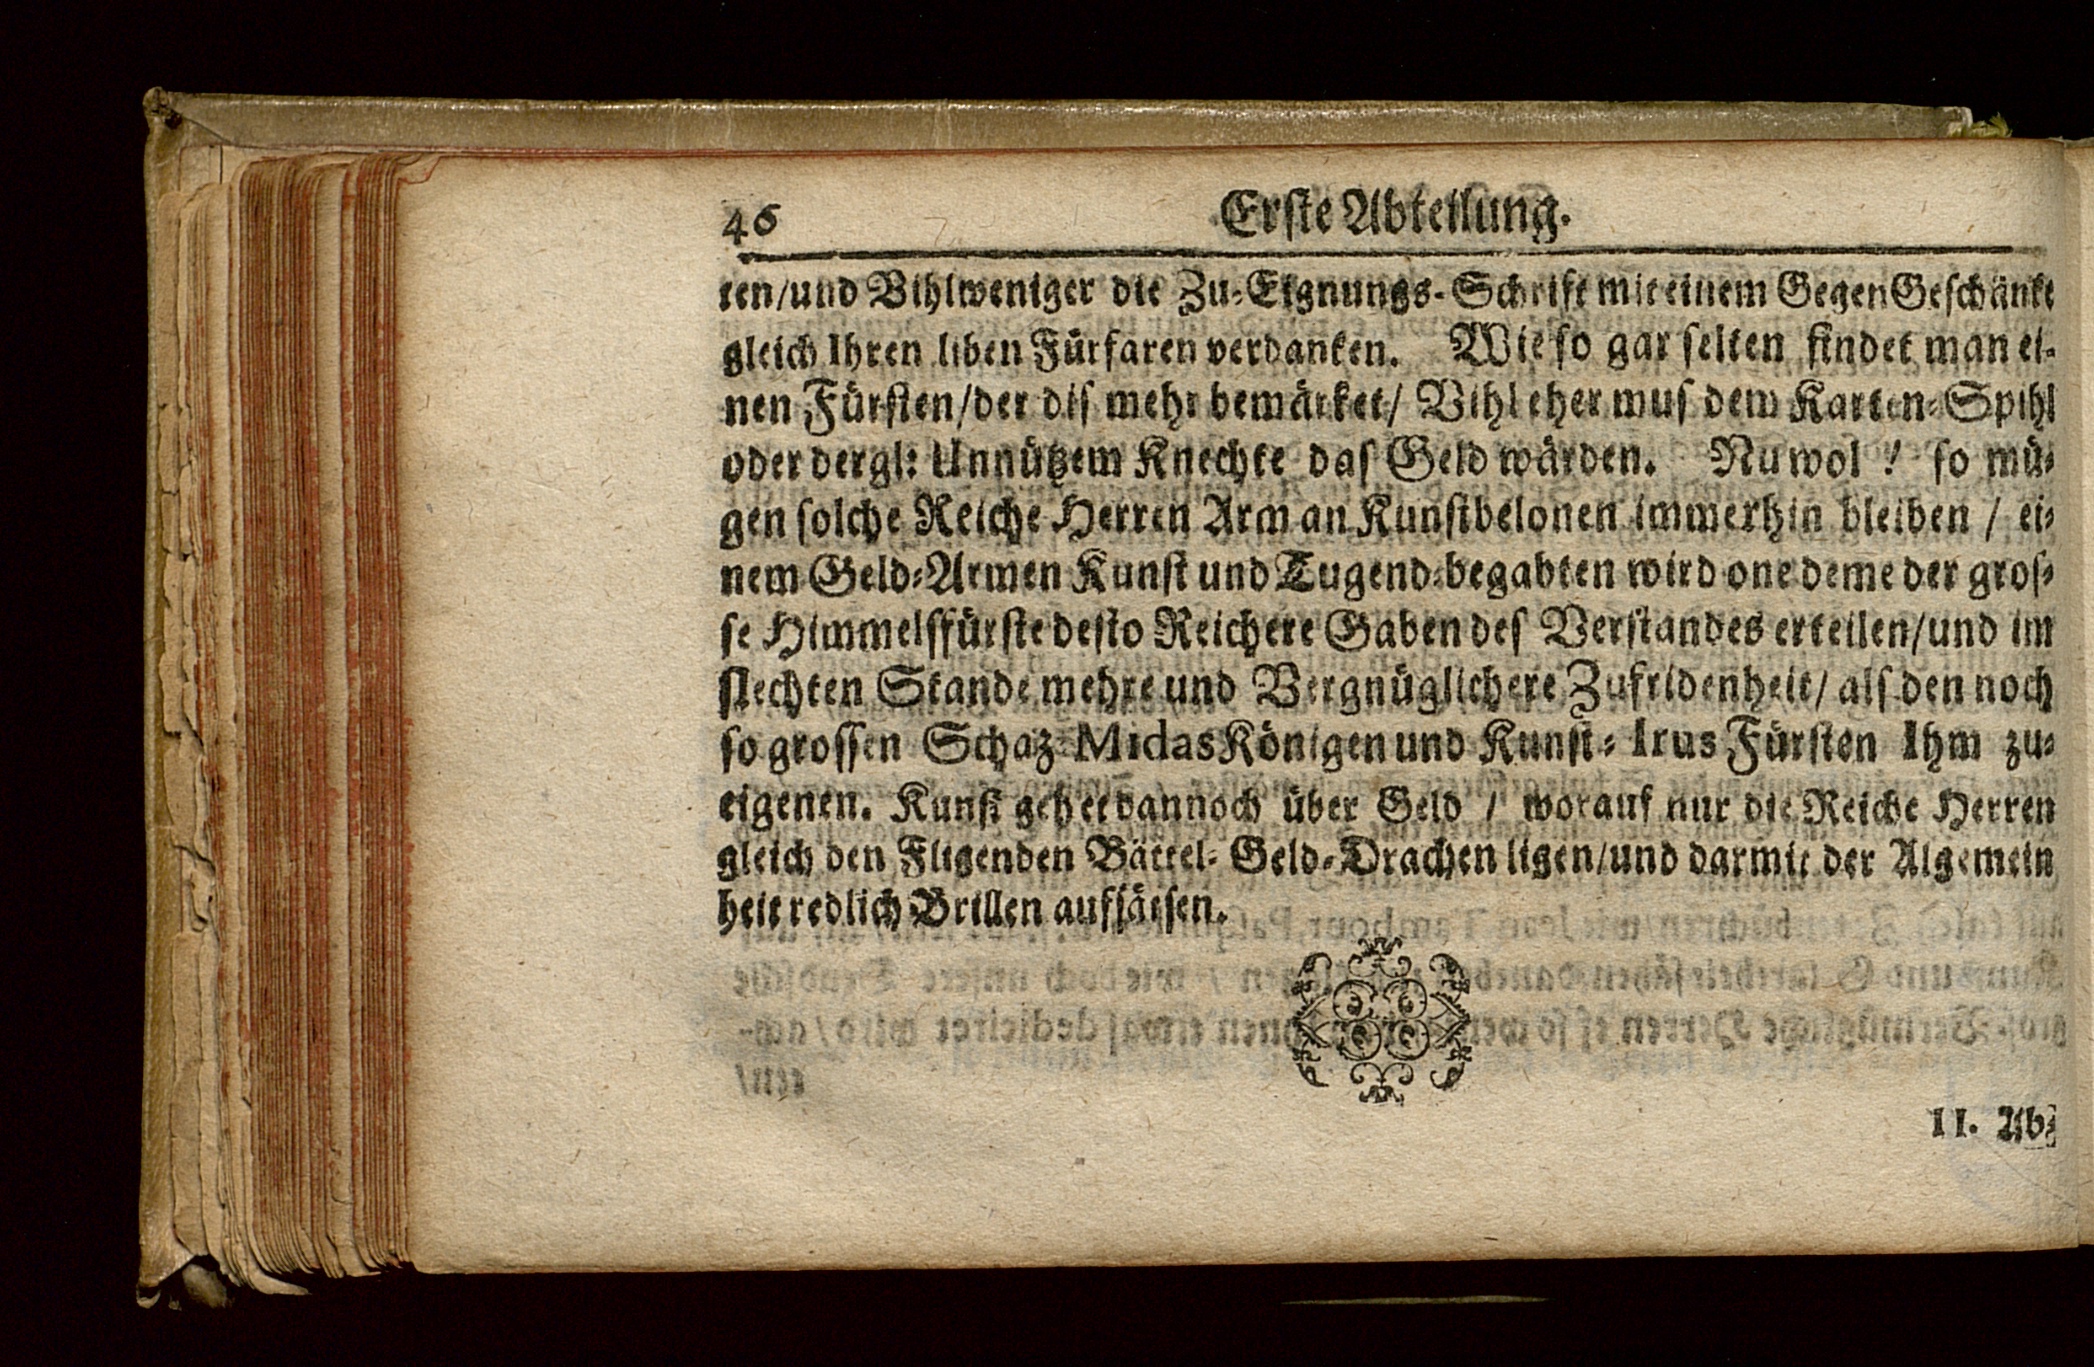 46 Erste Abteilung.
ten/und Vihlweniger die Zu-Eignungs-Schrift mit einem GegenGeschänke
gleich Ihren liben Fürfaren verdanken. Wie so gar selten findet man ei-
nen Fürsten/der dis mehr bemärket/ Vihl eher mus dem Karten-Spihl
oder dergl: Unnützem Knechte das Geld wärden. Nu wol! so mü-
gen solche Reiche Herren Arm an Kunstbelonen immerhin bleiben / ei-
nem Geld-Armen Kunst und Tugend-begabten wird one deme der gros-
se Himmelsfürste desto Reichere Gaben des Verstandes erteilen/und im
slechten Stande mehre und Vergnüglichere Zufridenheit/ als den noch
so grossen Schaz-Midas Königen und Kunst-Irus Fürsten Ihm zu-
eigenen. Kunst gehet dannoch über Geld / worauf nur die Reiche Herren
gleich den Fligenden Bättel-Geld-Drachen ligen/und darmit der Algemein
heit redlich Brillen aufsätsen.
II. Ab-